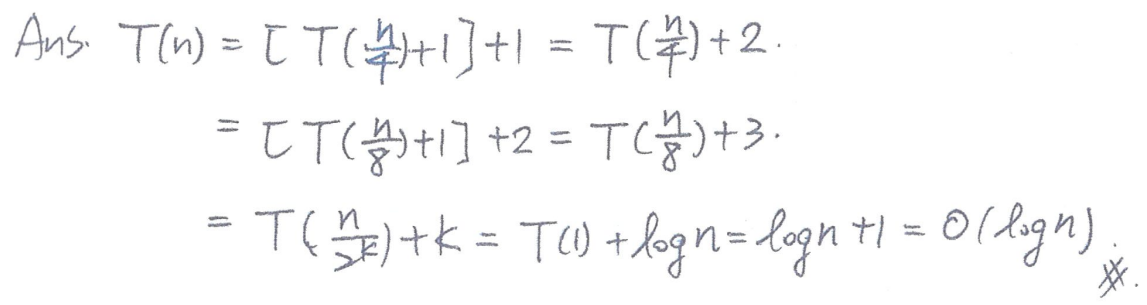 Ans. T(n) = [T(n/4)+1]+1 = T(n/4)+2.
= [T(n/8)+1]+2 = T(n/8)+3.
= T(n/2^k)+k = T(1)+logn = logn+1 = O(logn)